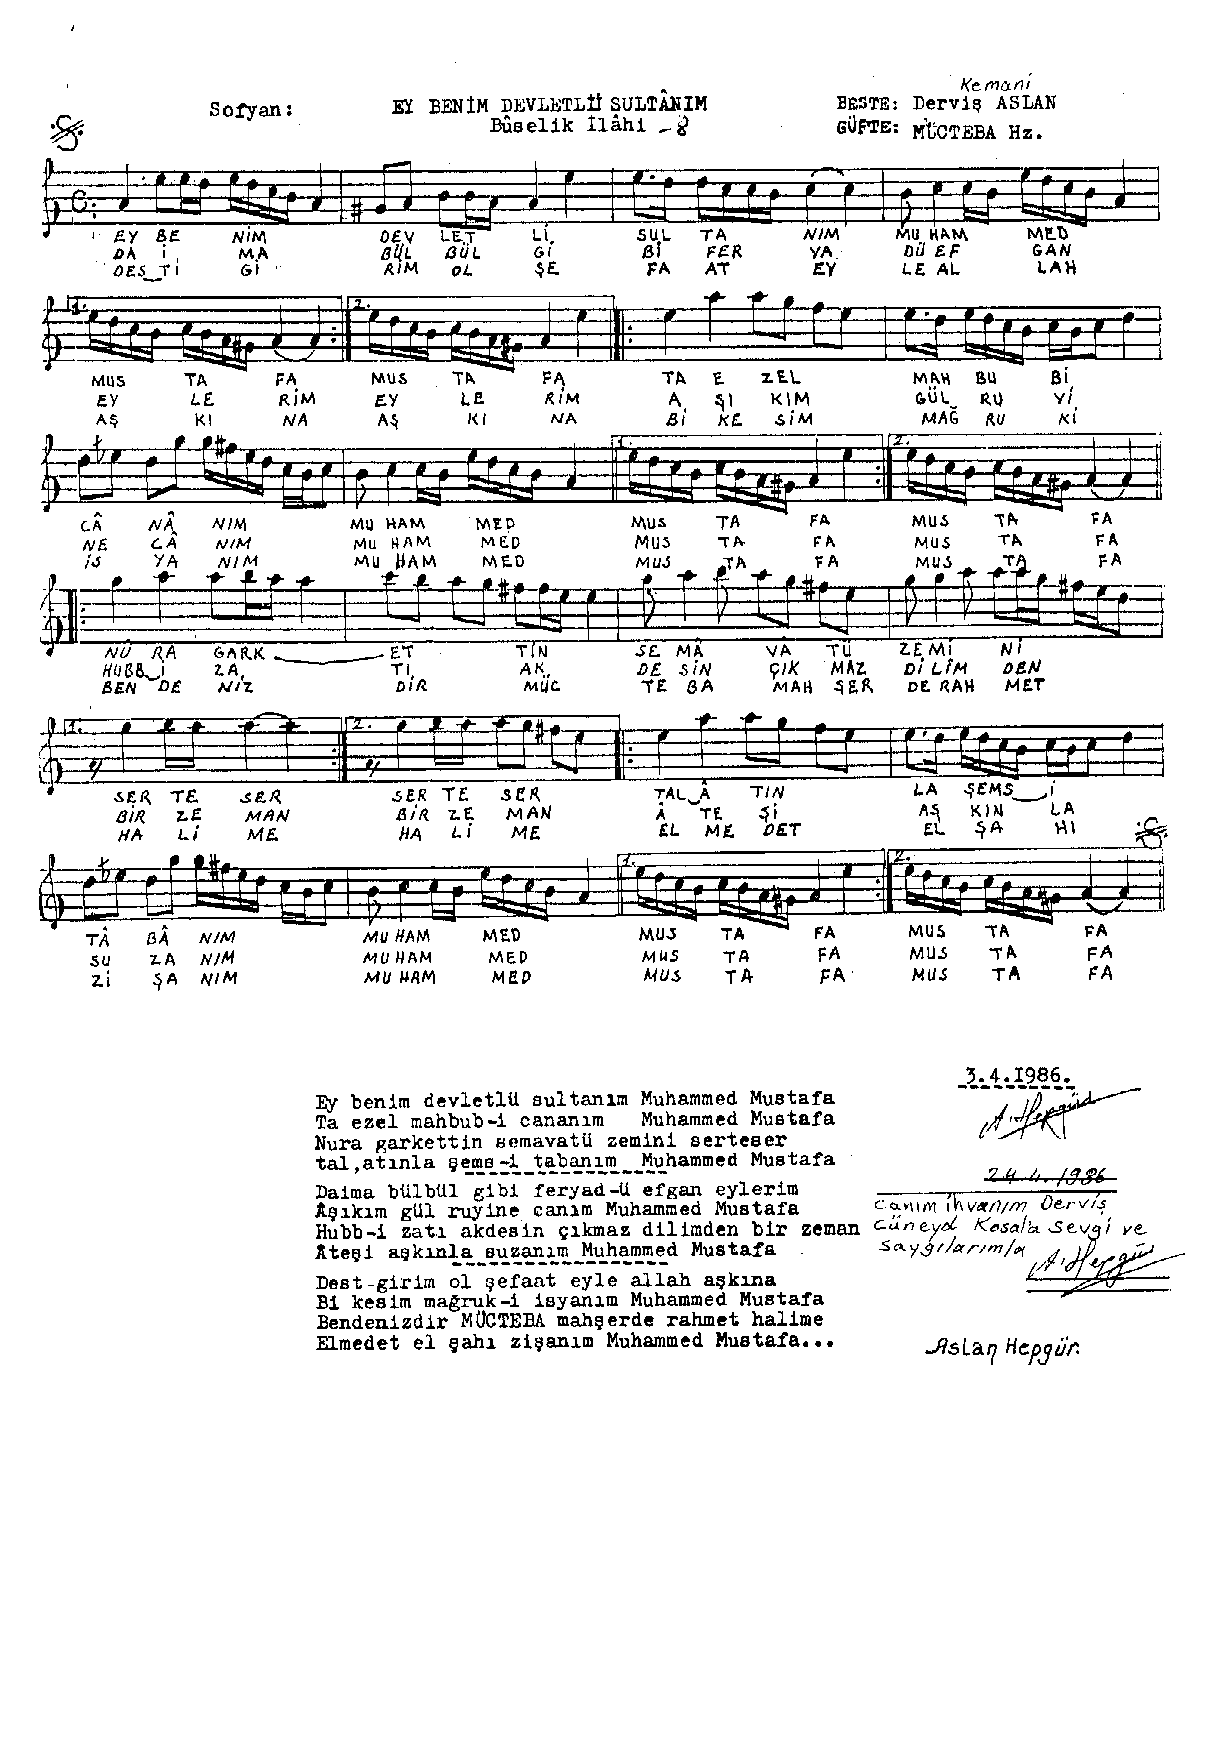 Kemani
Sofyan: EY BENİM DEVLETLÜ SULTÂNIM BESTE: Derviş ASLAN
Bûselik İlâhi -8 GÜFTE: MÜCTEBA Hz.
EY BE NİM DEV LET Lİ SUL TA NIM MU HAM MED
DA İ MA BÜL BÜL Gİ Bİ FER YA DÜ EF GAN
DES_Tİ Gİ RİM OL ŞE FA AT EY LE AL LAH
1. 2.
MUS TA FA MUS TA FA TA E ZEL MAH BU Bİ
EY LE RİM EY LE RİM A ŞI KIM GÜL RU Yİ
AŞ KI NA AŞ KI NA Bİ KE SİM MAĞ RU Kİ
1. 2.
CÂ NÂ NIM MU HAM MED MUS TA FA MUS TA FA
NE CÂ NIM MU HAM MED MUS TA FA MUS TA FA
İS YA NIM MU HAM MED MUS TA FA MUS TA FA
NÛ RA GARK ET TİN SE MÂ VÂ TÜ ZE Mİ Nİ
HUBB_İ ZA Tİ AK DE SİN ÇIK MAZ Dİ LİM DEN
BEN DE NİZ DİR MÜC TE BA MAH ŞER DE RAH MET
1. 2.
SER TE SER SER TE SER TAL_Â TIN LA ŞEMS_İ
BİR ZE MAN BİR ZE MAN Â TE Şİ AŞ KIN LA
HA Lİ ME HA Lİ ME EL ME DET EL ŞA HI
1. 2.
TÂ BÂ NIM MU HAM MED MUS TA FA MUS TA FA
SU ZA NIM MU HAM MED MUS TA FA MUS TA FA
Zİ ŞA NIM MU HAM MED MUS TA FA MUS TA FA
3.4.1986.
Ey benim devletlü sultanım Muhammed Mustafa
Ta ezel mahbub-i cananım Muhammed Mustafa
A. Hepgür
Nura garkettin semavatü zemini serteser
tal,atınla şems-i tabanım Muhammed Mustafa
24.4.1986
Daima bülbül gibi feryad-ü efgan eylerim
Aşıkım gül ruyine canım Muhammed Mustafa
Canım ihvanım Derviş
Hubb-i zatı akdesin çıkmaz dilimden bir zeman
Cüneyd Kosala Sevgi ve
Ateşi aşkınla suzanım Muhammed Mustafa
Saygılarımla A. Hepgür
Dest-girim ol şefaat eyle allah aşkına
Bi kesim mağruk-i isyanım Muhammed Mustafa
Bendenizdir MÜCTEBA mahşerde rahmet halime
Elmedet el şahı zişanım Muhammed Mustafa...
Aslan Hepgür.